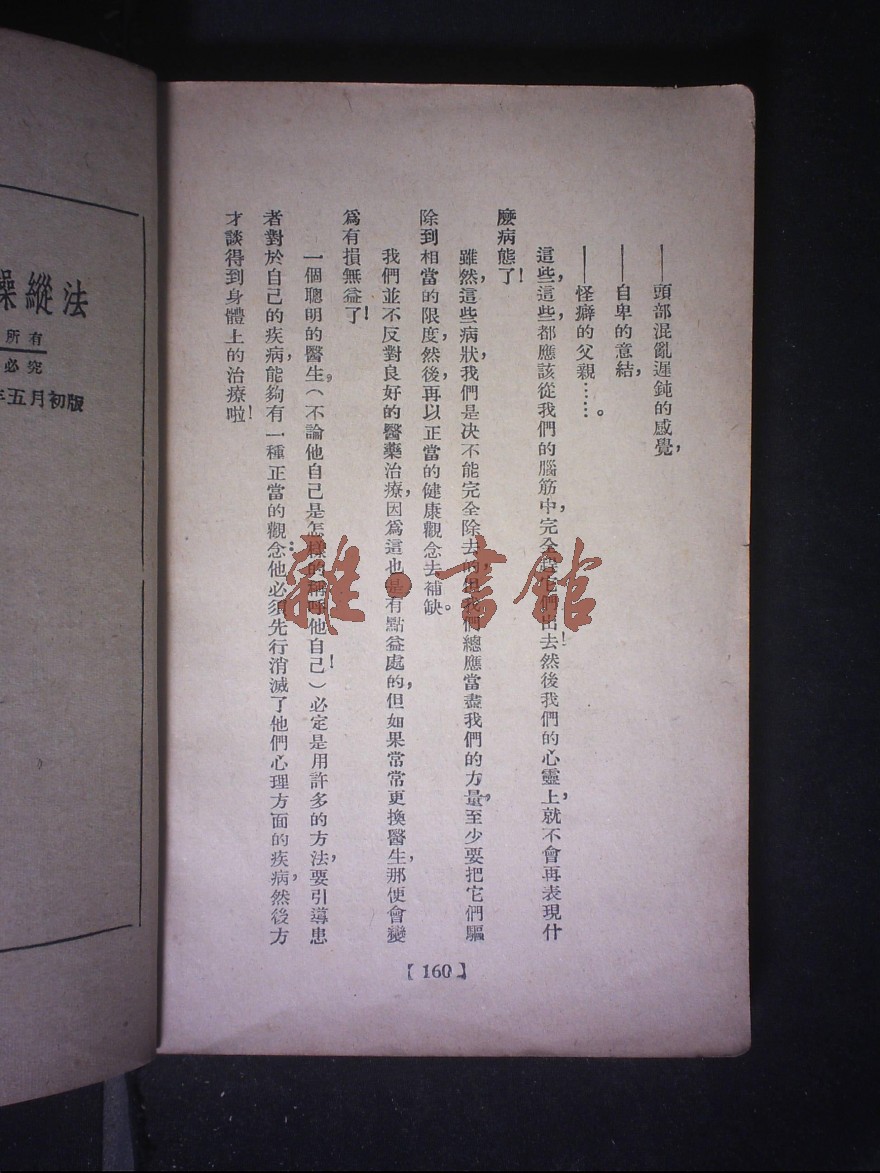 ——頭部混亂遲鈍的感覺，
——自卑的意結，
——怪癖的父親……。
這些，這些，都應該從我們的腦筋中，完全它們出去！然後我們的心靈上，就不會再表現什
麼病態了！
雖然，這些病狀，我們是决不能完全除去的，但我們總應當盡我們的力量，至少要把它們驅
除到相當的限度，然後，再以正當的健康觀念去補缺。
我們並不反對良好的醫藥治療，因爲這也是有點益處的，但如果常常更換醫生，那便會變
爲有損無益了！
一個聰明的醫生。（不論他自己是怎樣的稱呼他自己！）必定是用許多的方法，要引導患
者對於自己的疾病，能夠有一種正當的觀念：他必須先行消滅了他們心理方面的疾病，然後方
才談得到身體上的治療啦！
【160】
操縱法
所有
必究
年五月初版
雜·書館